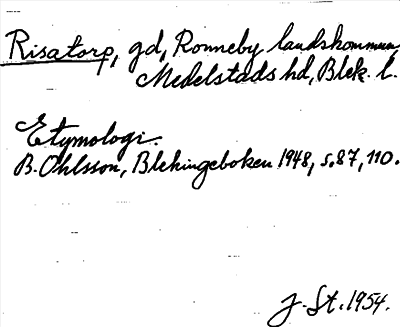 Risatorp, gd, Ronneby landskommun,
Medelstads hd, Blek. l.
Etymologi.
B. Ohlsson, Blekingeboken 1948, s. 87, 110.
J. St. 1954.